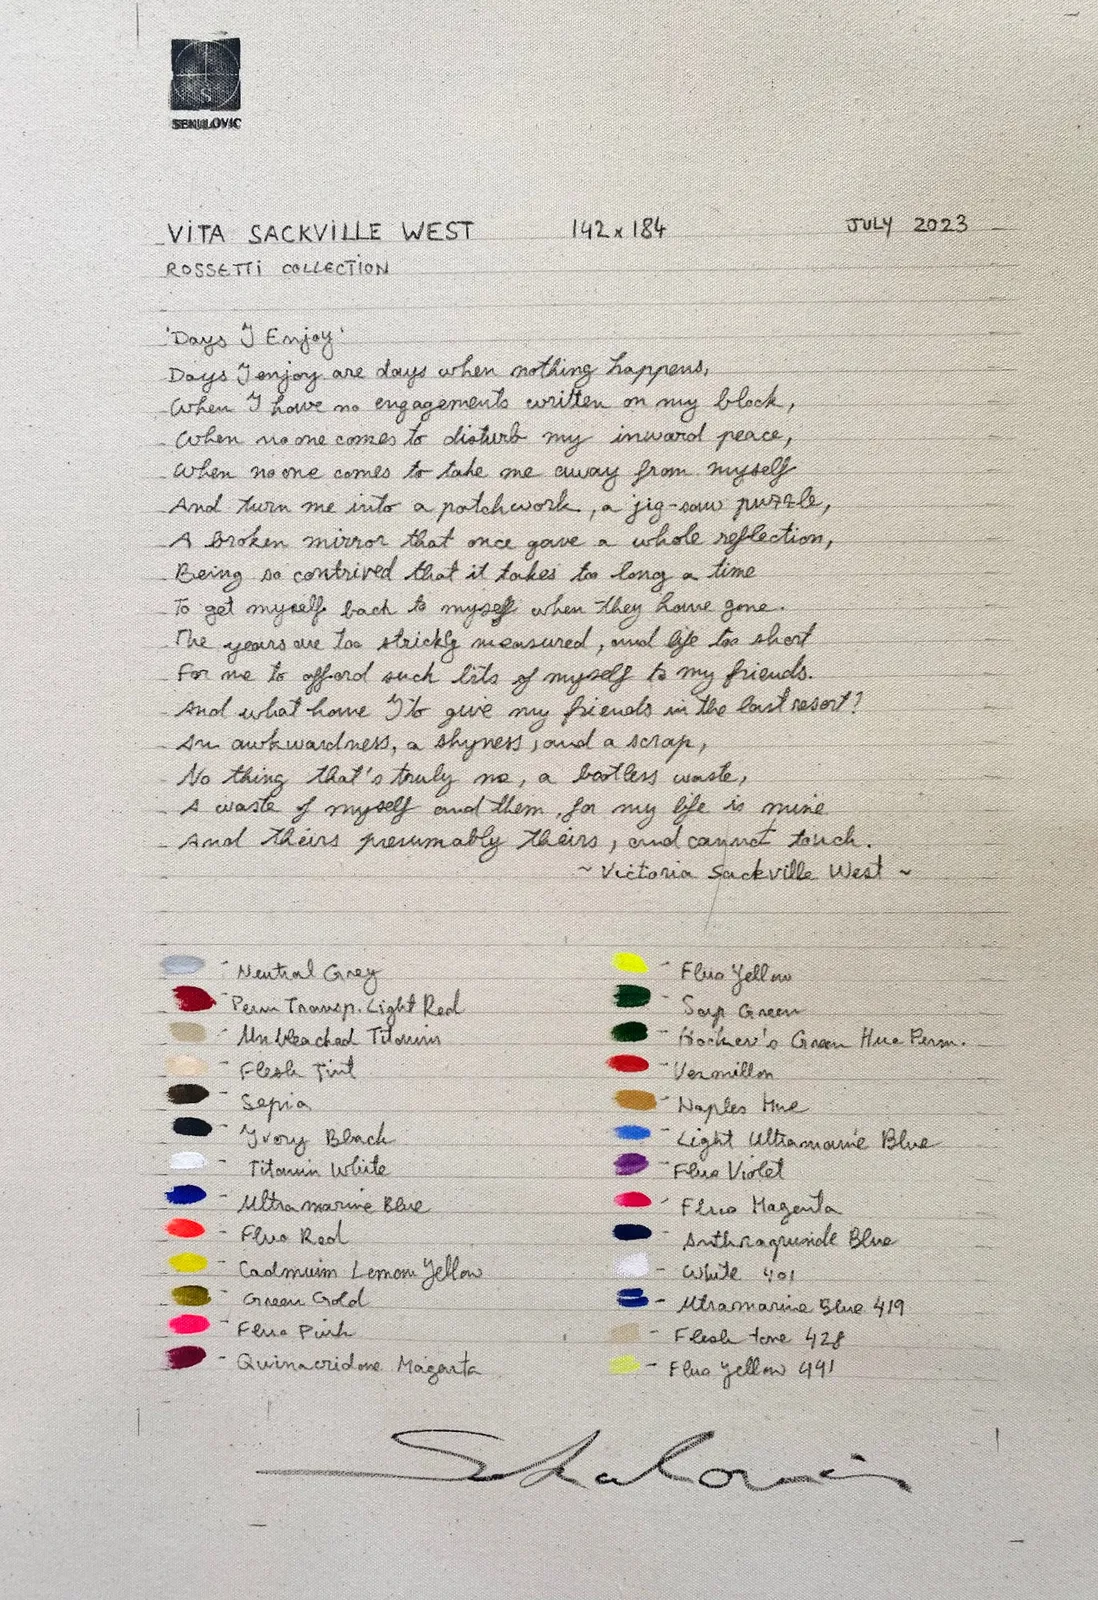 S
SEKULOVIC
VITA SACKVILLE WEST 142 x 184 JULY 2023
ROSSETTI COLLECTION
'Days I Enjoy'
Days I enjoy are days when nothing happens,
When I have no engagements written on my block,
When no one comes to disturb my inward peace,
When no one comes to take me away from myself
And turn me into a patchwork, a jig-saw puzzle,
A broken mirror that once gave a whole reflection,
Being so contrived that it takes too long a time
To get myself back to myself when they have gone.
The years are too strickly measured, and life too short
For me to afford such bits of myself to my friends.
And what have I to give my friends in the last resort?
An awkwardness, a shyness, and a scrap,
No thing that's truly me, a bootless waste,
A waste of myself and them, for my life is mine
And theirs presumably theirs, and cannot touch.
~ Victoria Sackville West ~
- Neutral Grey
- Perm Transp. Light Red
- Unbleached Titanium
- Flesh Tint
- Sepia
- Ivory Black
- Titanin White
- Ultramarine Blue
- Fluo Red
- Cadmuim Lemon Yellow
- Green Gold
- Fluo Pink
- Quinacridone Magenta
- Fluo Yellow
- Sap Green
- Hocker's Green Hue Perm.
- Vermillon
- Naples Hue
- Light Ultramarine Blue
- Fluo Violet
- Fluo Magenta
- Blue
- White 401
- Ultramarine Blue 419
- Flesh tone 428
- Fluo Yellow 441
Sekulovic